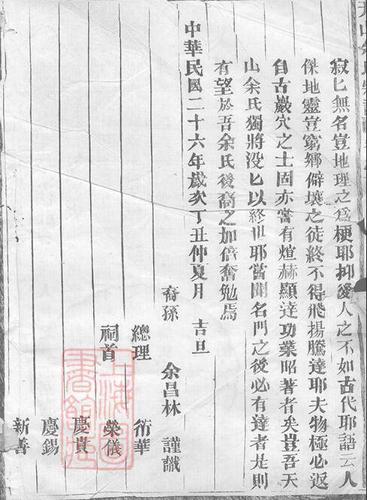 寂匕無名豈地理之為梗耶抑後人之不如古代耶語云人
傑地靈豈窮鄉僻壤之徒終不得飛揚騰達耶夫物極必返
自古巖穴之士固亦嘗有煊赫顯達功業昭著者矣豈吾天
山余氏獨將沒匕以終世耶嘗聞名門之後必有達者是則
有望於吾余氏後裔之加倍奮勉焉
中華民國二十六年歲次丁丑仲夏月 吉旦
裔孫 余昌林 謹識
總理 衍華
祠首 榮儀
慶貴
慶錫
新善